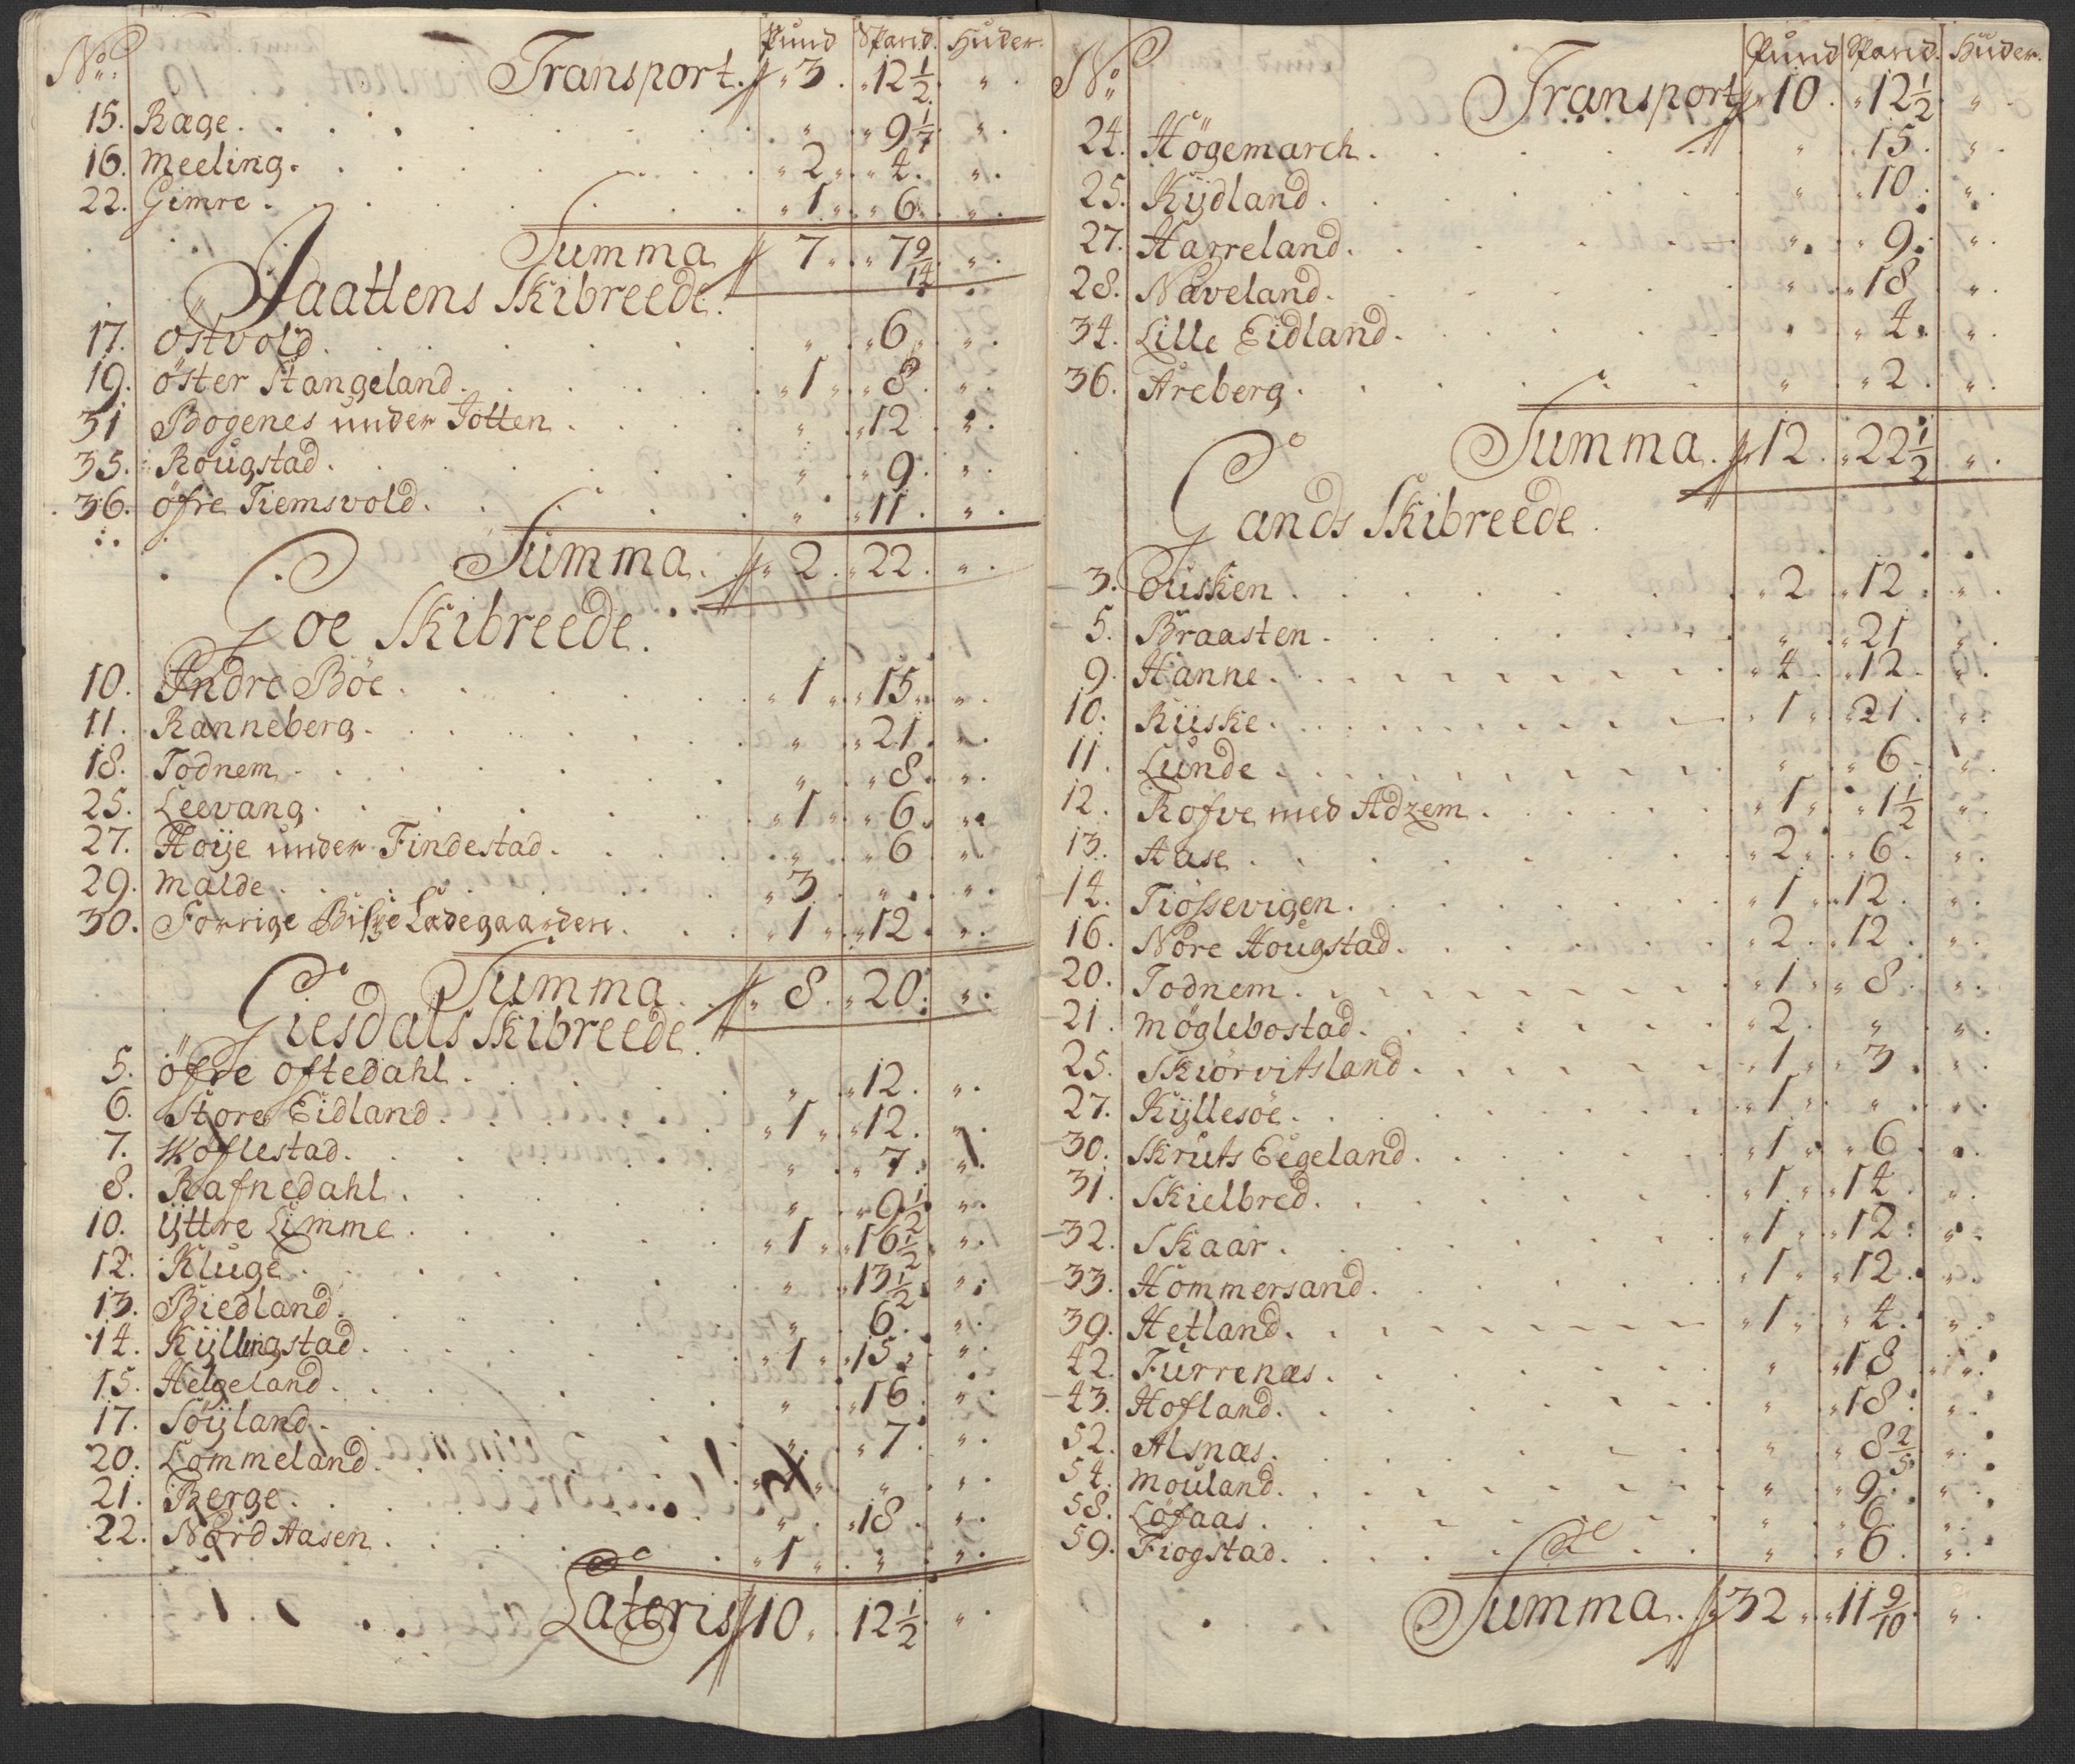 No: Pund Spand. Huder.
Transport. " 3. " 12 1/2. "
15. Rage. " " 9 1/7. "
16. Meeling. " 2. " 4. "
22. Gimre. " 1. " 6. "
Summa 7. " 7 9/14. "
Jaattens Skibreede.
17. Ostvold. " " 6. "
19. öster Stangeland. " 1. " 8. "
31 Bogenes under Jotten. " " 12. "
35. Rougstad. " " 9. "
36. öfre Tiemsvold. " " 11. "
Summa. " 2. " 22. "
Goe Skibreede.
10. Indre Böe. " 1. " 15. "
11. Ranneberg. " " 21. "
18. Todnem. " " 8. "
25. Leevang. " 1. " 6. "
27. Hoije under Findestad. " " 6. "
29. Malde. " 3. " "
30. Forrige Bispe Ladegaarden. " 1. " 12. "
Summa. " 8. " 20. "
Giesdals Skibreede.
5. öfre oftedahl. " " 12. "
6. Store Eidland. " 1. " 12. "
7. Köflestad. " " 7. "
8. Rafnedahl. " " 9 1/2. "
10. ÿttre Limme. " 1. " 16 1/2. "
12. Kluge. " " 13 1/2. "
13. Biedland. " 6. "
14. Kÿllingstad. " 1. " 15. "
15. Helgeland. " " 16. "
17. Söÿland. " " 7. "
20. Lommeland. " " "
21. Berge. " " 18. "
22. Nord Aasen. " 1. " "
Lateris 10. 12 1/2. "
No: Pund Spand. Huder.
Transport " 10. " 12 1/2. "
24. Högemarch. " " 15. "
25. Kÿdland. " " 10. "
27. Harreland. " " 9. "
28. Næveland. " " 18. "
34. Lille Eidland. " " 4. "
36. Areberg. " " 2. "
Summa. " 12. " 22 1/2. "
Gands Skibreede.
3. Ousken. " 2. " 12. "
5. Braasten. " " 21. "
9. Hanne. " 4. " 12. "
10. Riiske. " 1. " 21. "
11. Lunde. " " 6. "
12. Rofve med Adzem. " 1. " 1 1/2. "
13. Aase. " 2. " 6. "
14. Tiössevigen. " 1. " 12. "
16. Nore Hougstad. " 2. " 12. "
20. Todnem. " 1. " 8. "
21. Möglebostad. " 2. " "
25. Skiörvitsland. " 1. " 3. "
27. Kÿllesöe. " 1. " "
30. Skruts Eegeland. " 1. " 6.
31. Skielbred. " 1. " 14. "
32. Skaar. " 1. " 12. "
33. Hommersand. " 1. " 12. "
39. Hetland. " 1. " 4. "
42. Furrenæs. " " 18. "
43. Hofland. " " 18. "
52. Alsnæs. " " 8 2/5. "
54. Mouland. " " 9. "
58. Löfaas. " " 6. "
59. Fiogstad. " " 6. "
Summa. 32. " 11 9/10. "